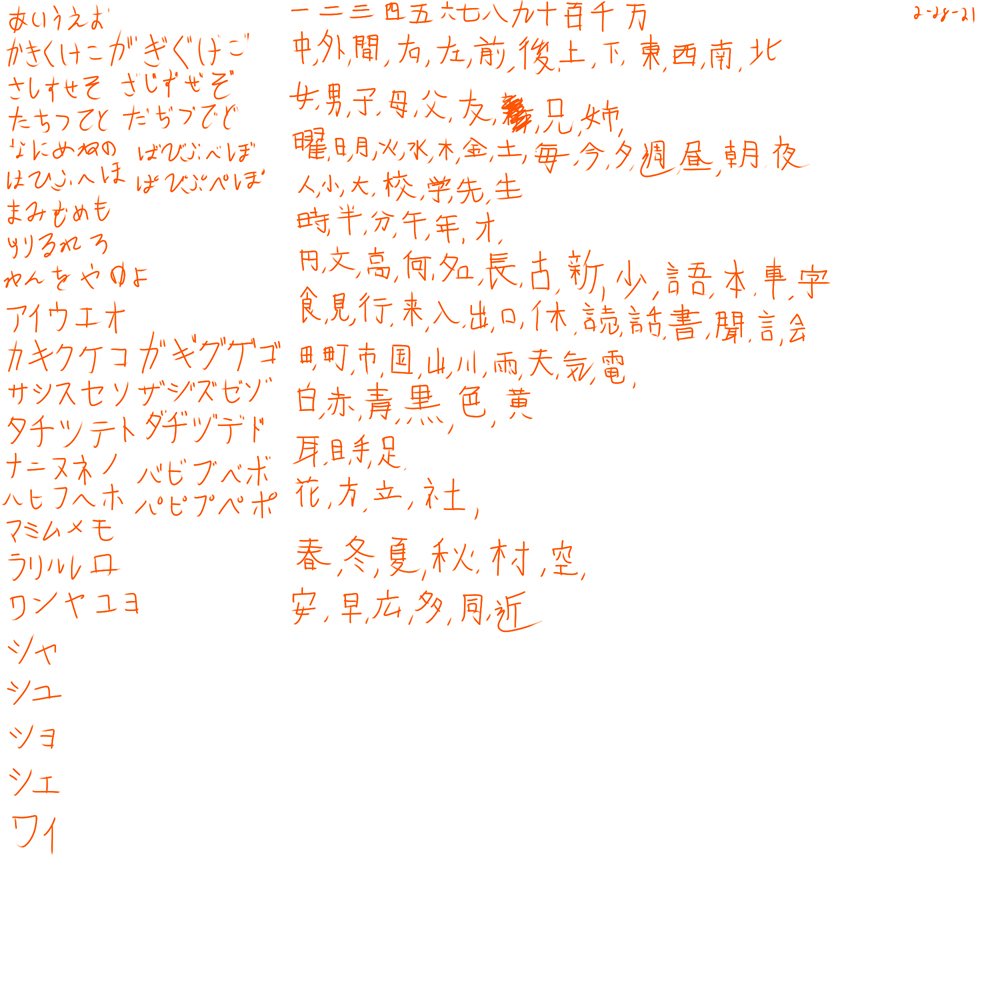 2-28-21
あいうえお
かきくけこ がぎぐげご
さしすせそ ざじずぜぞ
たちつてと だぢづでど
なにぬねの ばびぶべぼ
はひふへほ ぱぴぷぺぽ
まみむめも
らりるれろ
わんをやゆよ
アイウエオ
カキクケコ ガギグゲゴ
サシスセソ ザジズゼゾ
タチツテト ダヂヅデド
ナニヌネノ バビブベボ
ハヒフヘホ パピプペポ
マミムメモ
ラリルレロ
ワンヤユヨ
シャ
シュ
ショ
シェ
ワイ
一二三四五六七八九十百千万
中,外,間,右,左,前,後,上,下,東,西,南,北
女,男,子,母,父,友,兄,姉,
曜,日,月,火,水,木,金,土,毎,今,夕,週,昼,朝,夜
人,小,大,校,学,先,生
時,半,分,午,年,才,
円,文,高,何,名,長,古,新,少,語,本,車,字
食,見,行,来,入,出,口,休,読,話,書,聞,言,会
田,町,市,国,山,川,雨,天,気,電,
白,赤,青,黒,色,黄
耳,目,手,足
花,方,立,社,
春,冬,夏,秋,村,空,
安,早,広,多,同,近